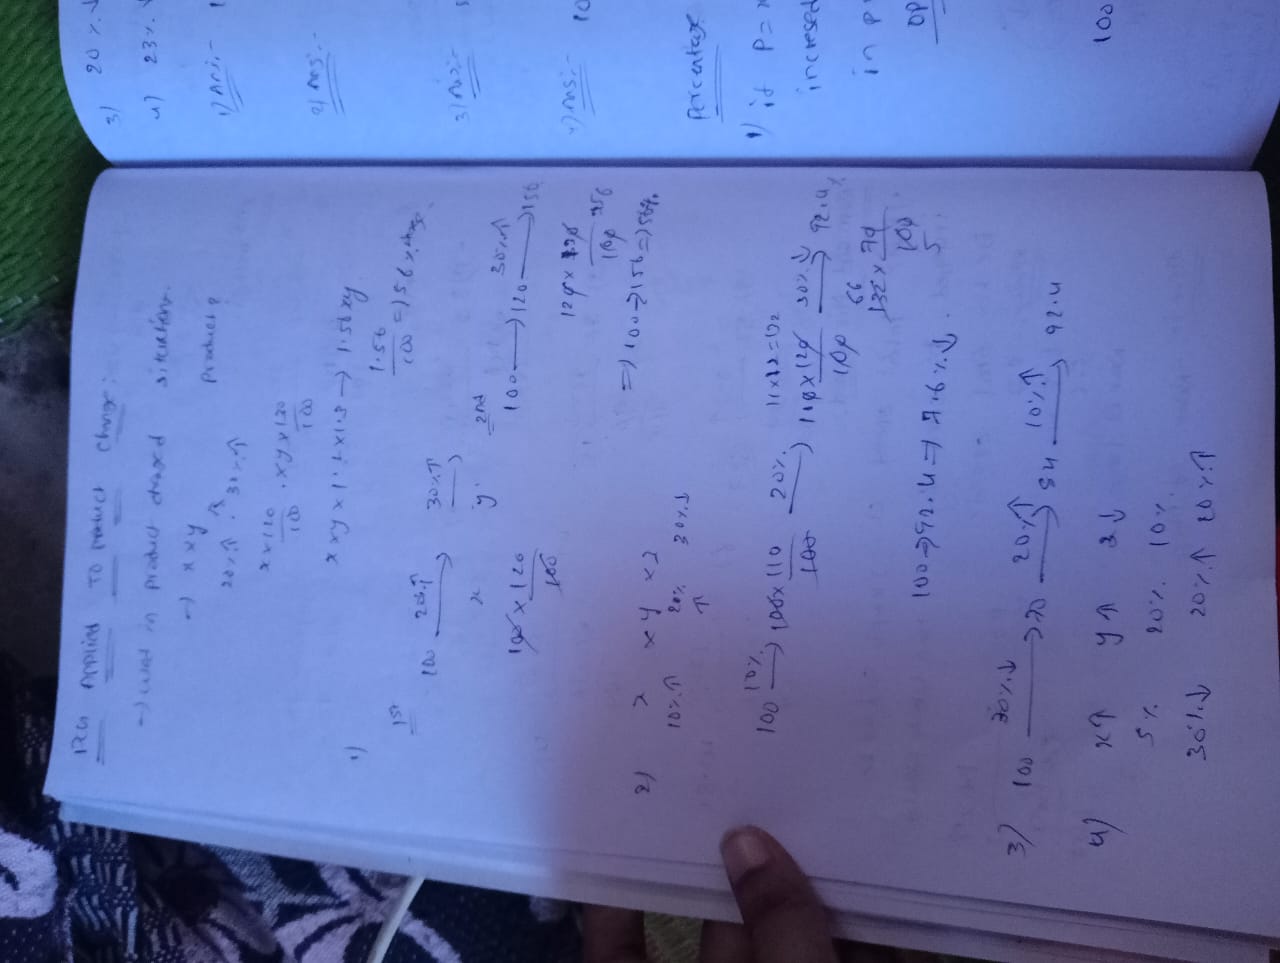 PCG Applied To Product Change:
→ used in product change situation.
→ x × y product?
20%↑ & 30%↑
x × 120/100 . x y × 130/100
x × y × 1.2 × 1.3 → 1.56 xy
1.56/100 ⇒ 56% change.
1)
1st 100 —20%↑→ 30%↑→
x y.
100 × 120/100
2nd
100 → 120 —30%↑→ 156
120 × 130/100 156
⇒ 100 → 156 ⇒ 56%
2) x × y × z
10%↑ 20%↑ 30%↓
100 —10%→ 100 × 110/100 —20%→ 110 × 120/100 —30%↓→ 92.4%
11 × 12 = 132
66
132 × 70/100
5
100 → 92.4 ⇒ 7.6%↓.
3) 100 —30%↓→ 70 —20%↑→ 84 —10%↑→ 92.4
4) x↑ y↑ z↓
5% 20% 10%
30%↓ 20%↑ 20%↑
3) 20%↓
4) 23%
1) Ans:-
2) Ans:-
3) Ans:-
4) Ans:- 10
Percentage
1) if P =
increased
in P
OP
100